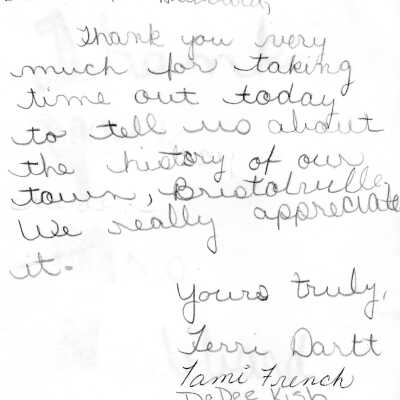 Thank you very
much for taking
time out today
to tell us about
the history of our
town, Bristolville.
We really appreciate
it.
Yours truly,
Terri Dartt
Tami French
DeDee Kish